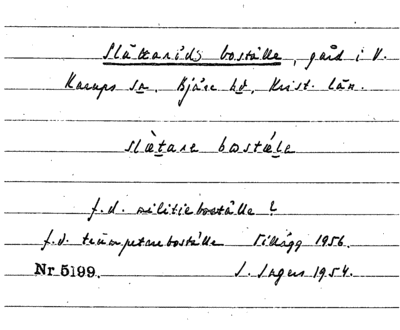 Slättaröds boställe, gård i V.
Karups sn, Bjäre hd, Krist. län.
slætare bostæle
f.d. militieboställe?
f.d. trumpetareboställe Tillägg 1956.
Nr 5199. S. Ingers 1954.